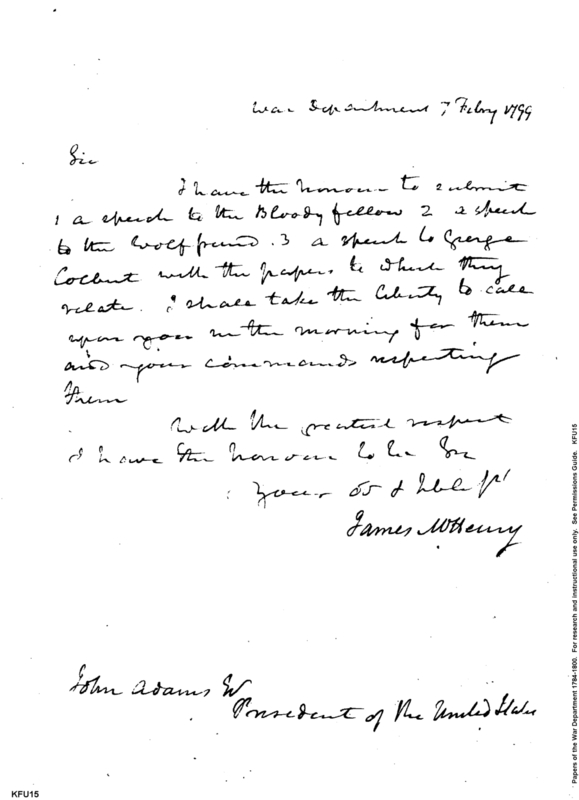 War Department 7 Febry 1799
Sir
I have the honour to submit
1 a speech to the Bloody fellow 2 a speech
to the Wolf friend. 3 a speech to George
Colbert with the papers to which they
relate. I shall take the liberty to call
upon you in the morning for them
and your commands respecting
them
With the greatest respect
I have the honour to be Sir
Your ob St
James McHenry
John Adams
President of the United States
Papers of the War Department 1784-1800. For research and instructional use only. See Permissions Guide. KFU15
KFU15